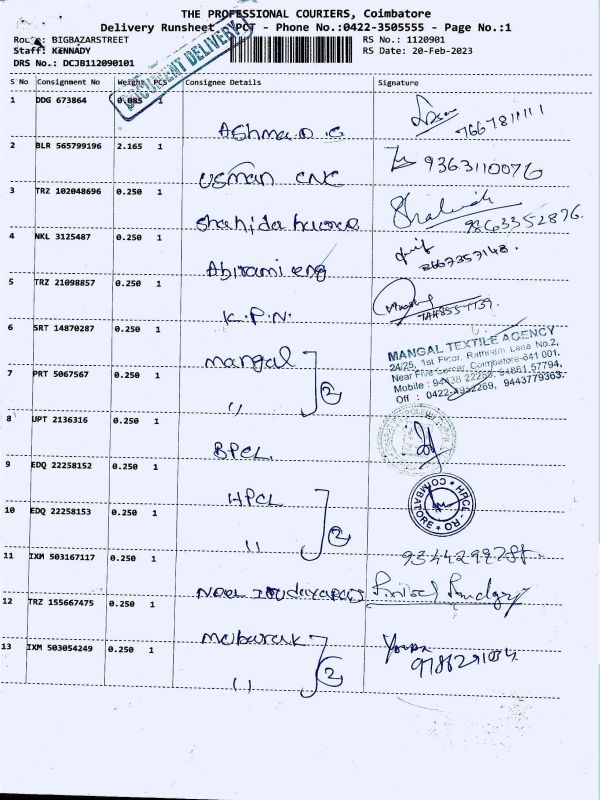 THE PROFESSIONAL COURIERS, Coimbatore
Delivery Runsheet - PCT - Phone No.:0422-3505555 - Page No.:1
BIGBAZARSTREET RS No.: 1120901
Staff: KENNADY RS Date: 20-Feb-2023
DRS No.: DCJB112090101
DOCUMENT DELIVERY
S No Consignment No Weight PCS Consignee Details Signature
1 DDG 673864 0.085 1
2 BLR 565799196 2.165 1
usman CNC 9363110076
3 TRZ 102048696 0.250 1
Shahida
4 NKL 3125487 0.250 1
Abirami eng
5 TRZ 21098857 0.250 1
K.P.N.
6 SRT 14870287 0.250 1
mangal 2
MANGAL TEXTILE AGENCY
24/25, 1st Floor, Rathinam Lane No.2,
Near Five Corner, Coimbatore-641 001.
Mobile : 94438 22269, 94861 57794,
Off : 0422-4392269, 9443779363.
7 PRT 5067567 0.250 1
〃
8 UPT 2136316 0.250 1
BPCL
9 EDQ 22258152 0.250 1
HPCL 2
HPCL - RO
COIMBATORE
10 EDQ 22258153 0.250 1
〃
11 IXM 503167117 0.250 1
12 TRZ 155667475 0.250 1
mubarak 2
13 IXM 503054249 0.250 1
〃